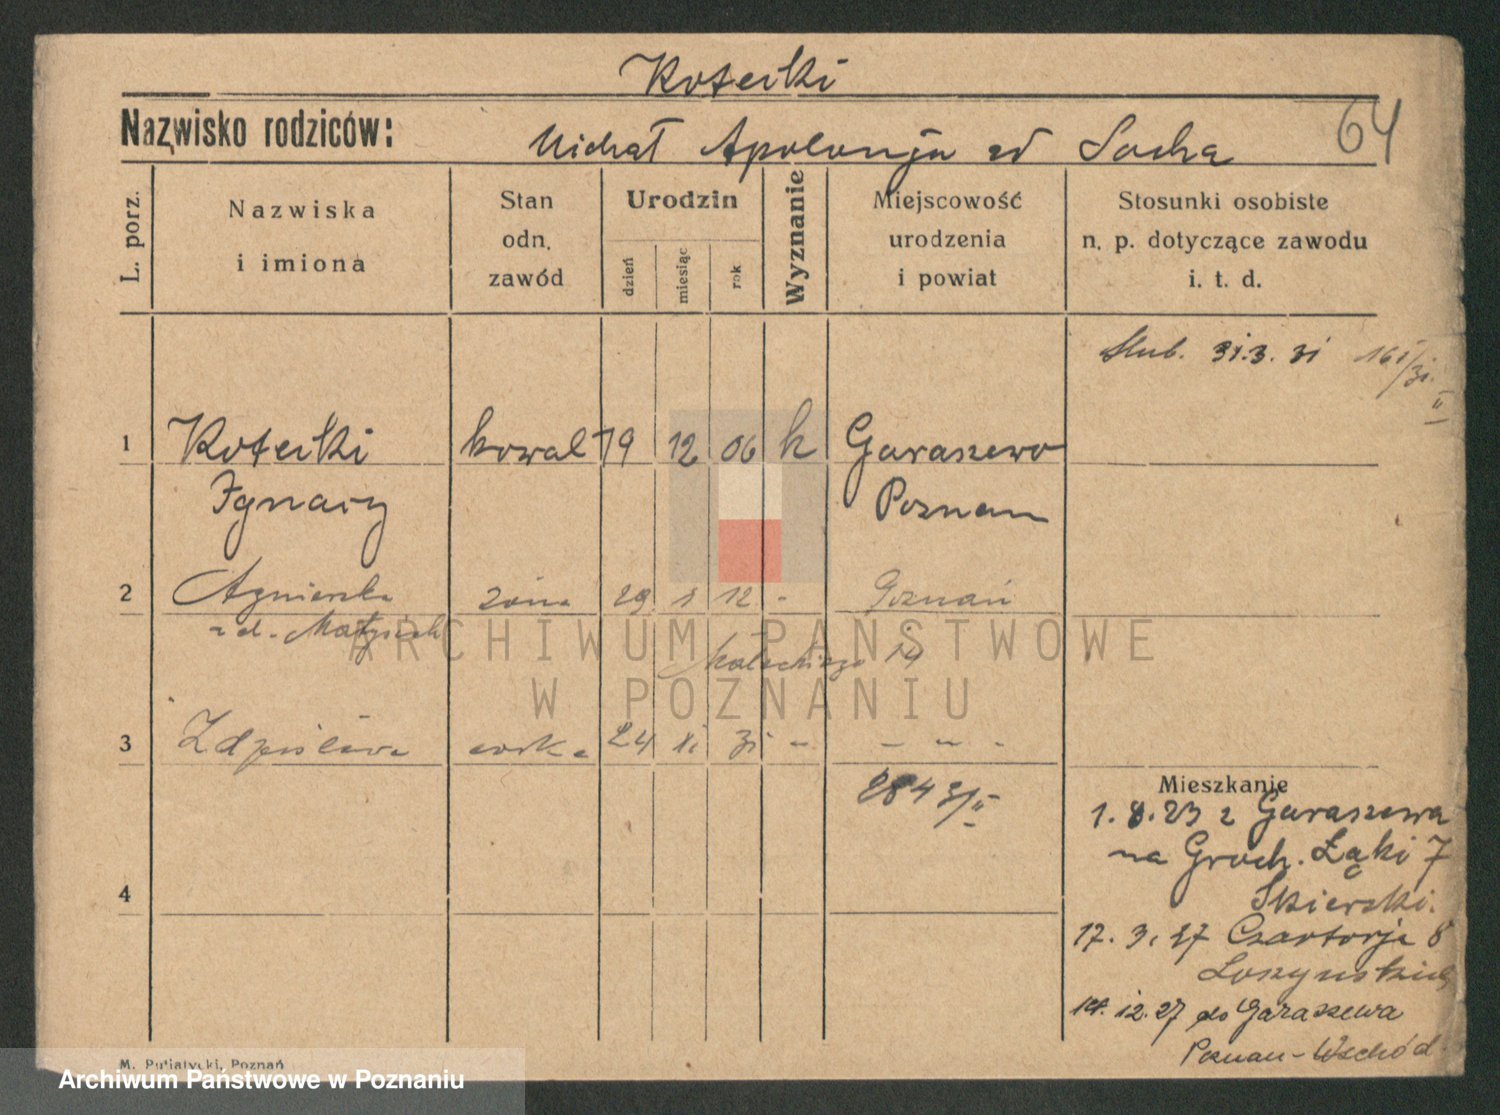 Koteiki
64
Nazwisko rodziców:
Michał Apolonja zd Socha
L. porz.
Nazwiska
i imiona
Stan
odn.
zawód
Urodzin
dzień
miesiąc
rok
Wyznanie
Miejscowość
urodzenia
i powiat
Stosunki osobiste
n. p. dotyczące zawodu
i. t. d.
Ślub. 31.3.31
1 Koteiki kowal 19 12 06 k Garaszewo
Ignacy Poznan
2 Agnieszka żona 29 1 12 - Poznań
zd.
14
3 Zdzisława corka 24 xi 31 - - - -
2843/II
4
Mieszkanie
1.8.23 z Garaszewa
na Groch. Łąki 7
Skierski.
17.3.27 Czartorja 8
12.27 do Garaszewa
Poznan-Wschód
M. Putiatycki, Poznań
ARCHIWUM PAŃSTWOWE
W POZNANIU
Archiwum Państwowe w Poznaniu